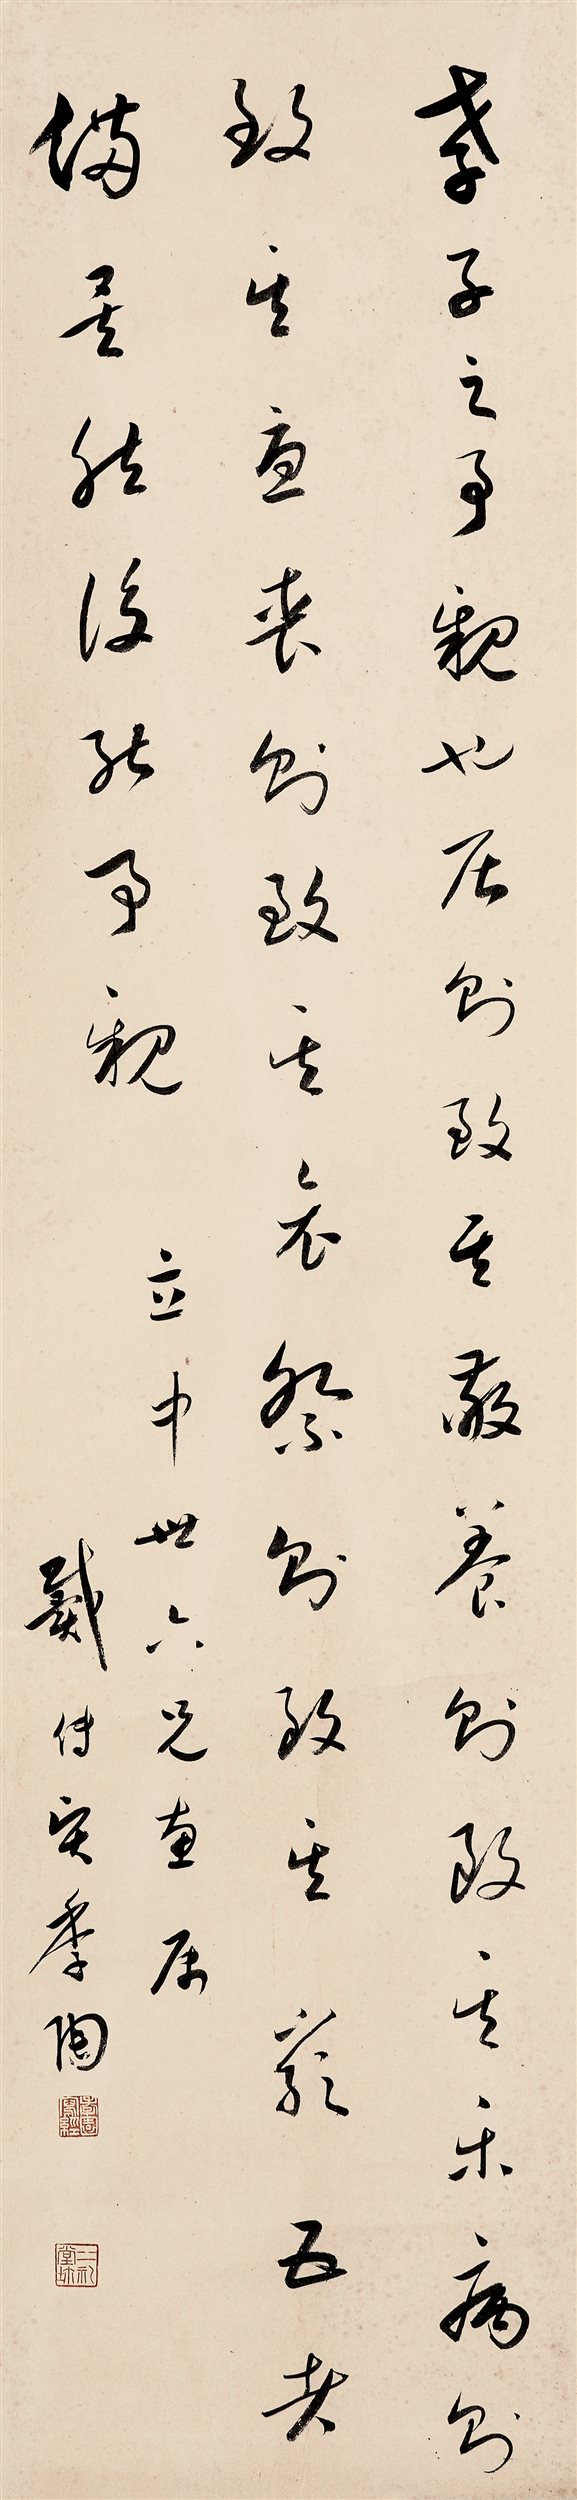 孝子之事親也居則致其敬養則致其樂病則
致其憂喪則致其哀祭則致其嚴五者
備矣然後能事親
立中世六兄惠属
戴傳賢季陶